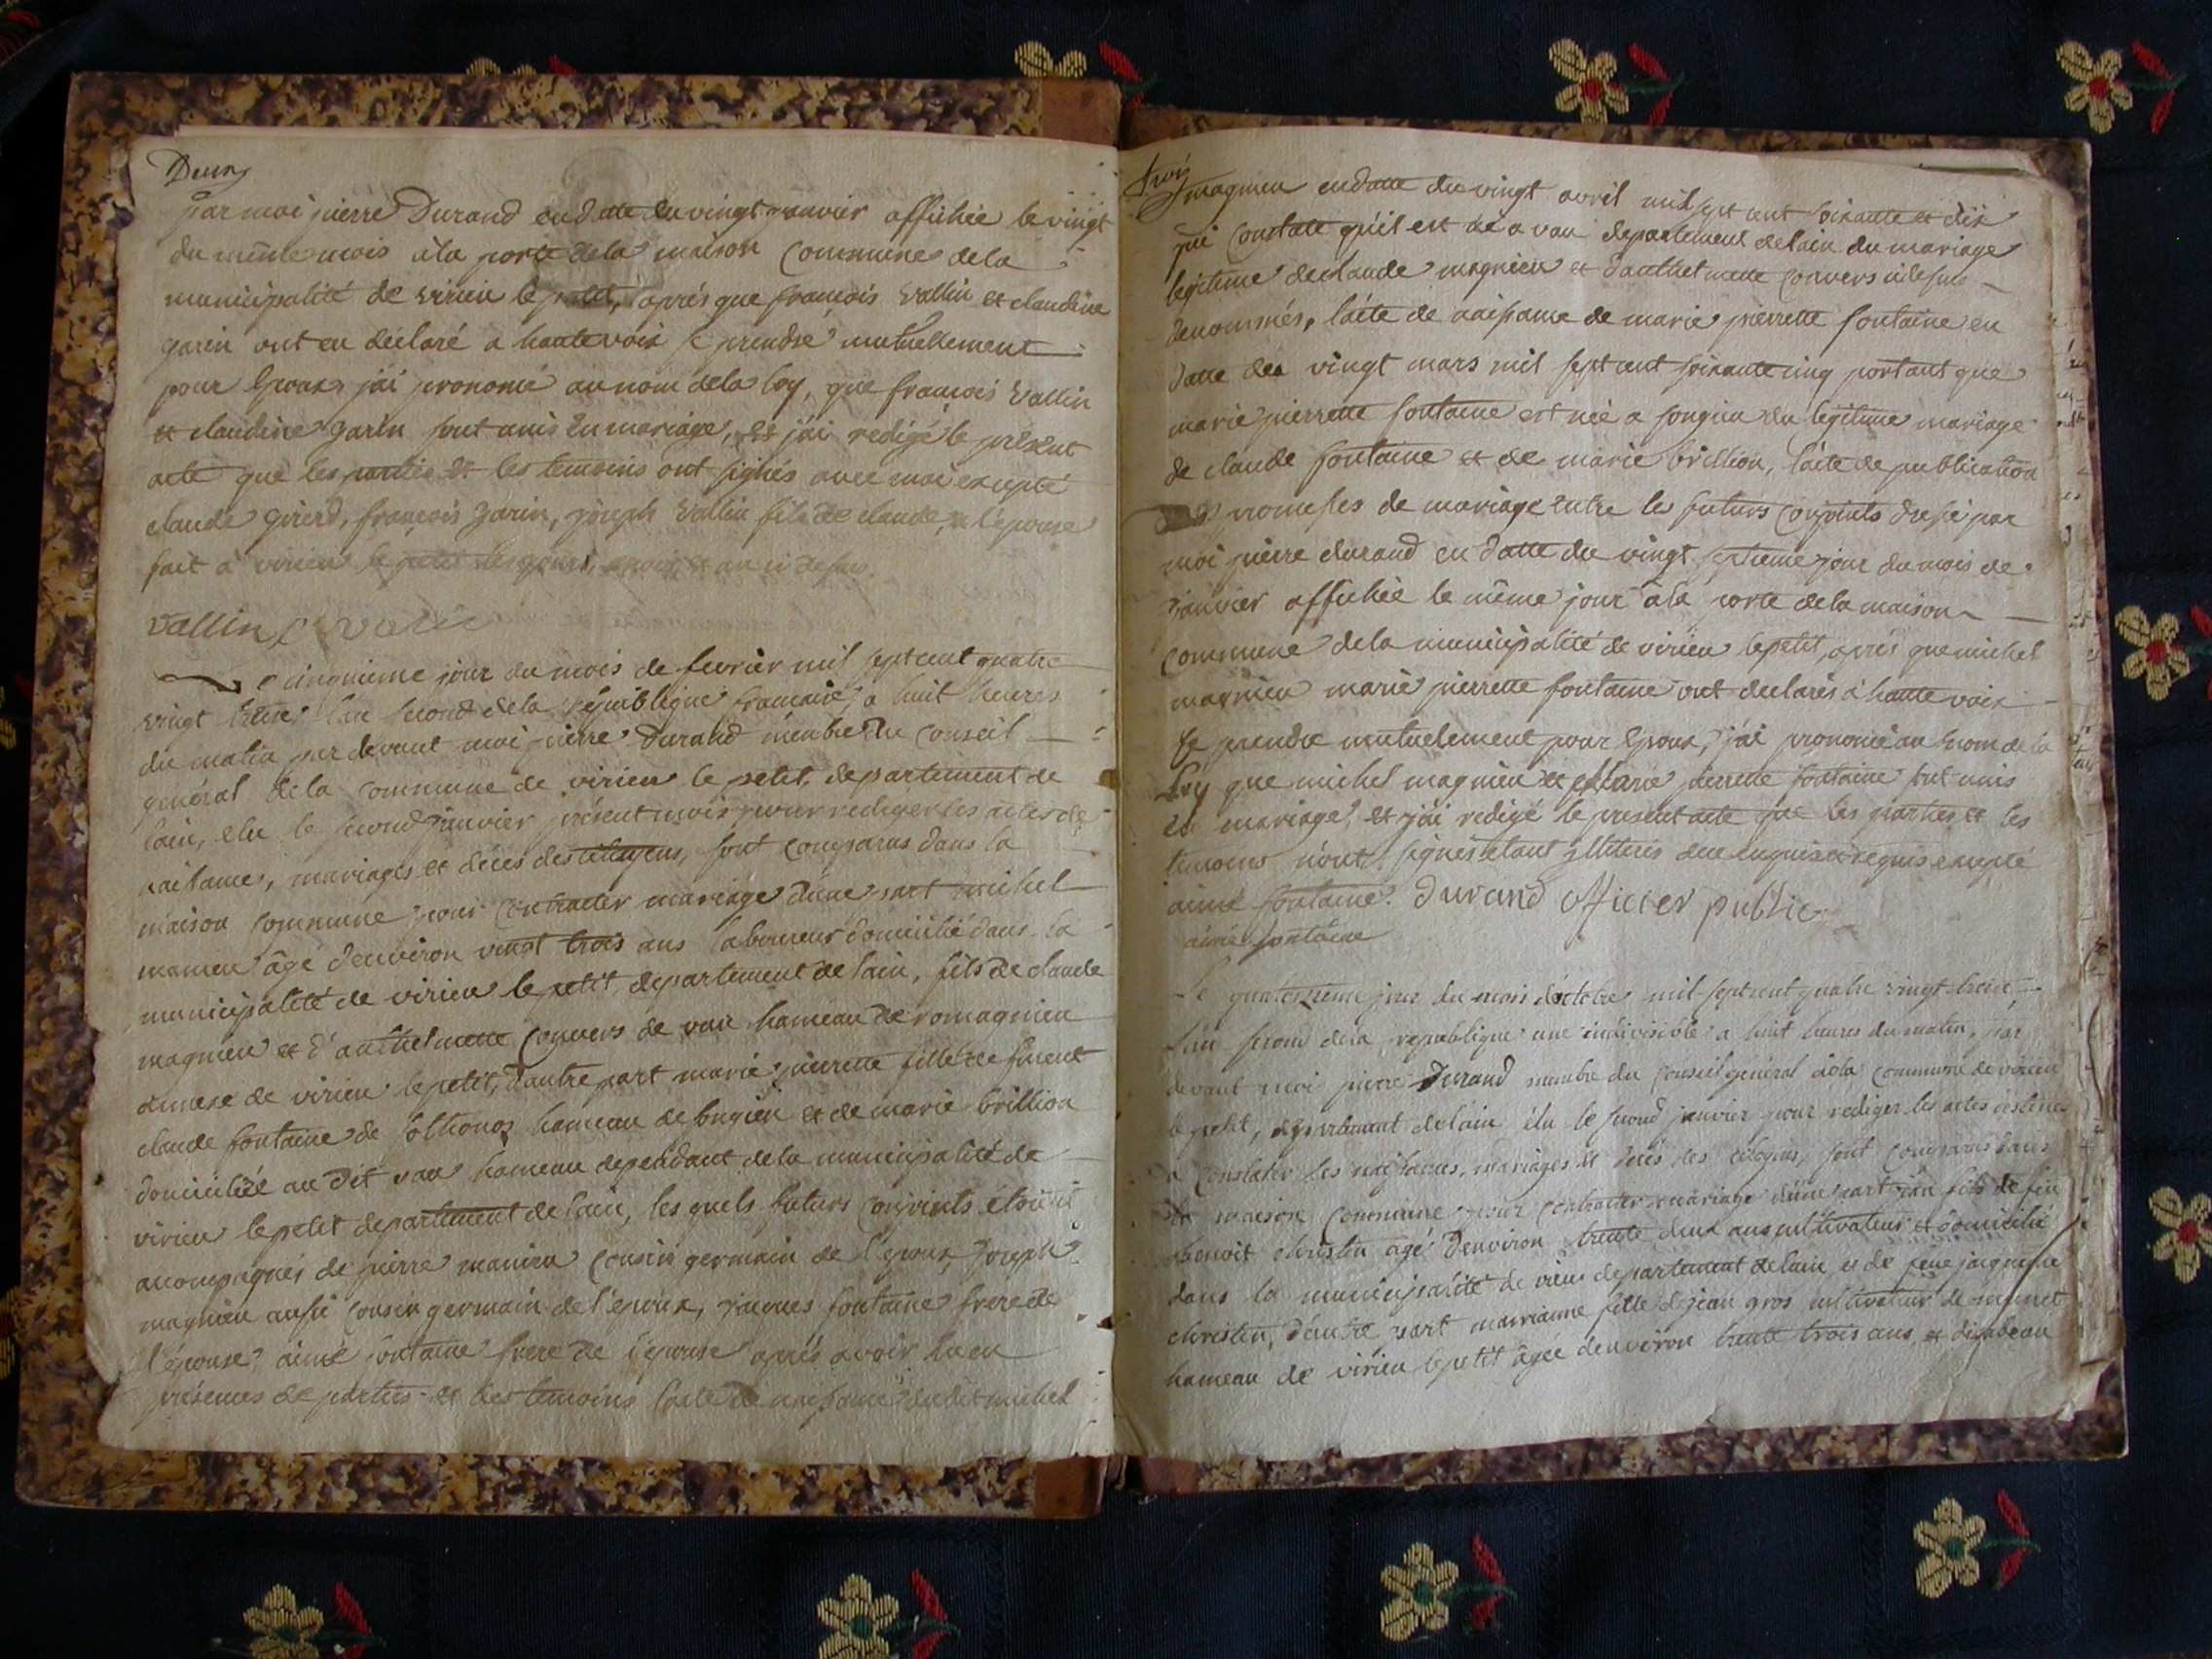 Deux
par moi pierre Durand en datte du vingt janvier affichée le vingt
du même mois à la porte de la maison Commune de la
municipalité de virieu le petit, après que françois vallin et claudine
garin ont eu déclaré a haute voix se prendre mutuellement
pour Epoux, j'ai prononcé au nom de la loy, que françois Vallin
et claudine garin sont unis En mariage, et j'ai redigé le présent
acte que les parties et les temoins ont signés avec moi excepté
claude françois garin, joseph vallin fils de claude, l'épouse
fait à virieu le petit les jours, mois et an ci dessus
vallin
Le cinquieme jour du mois de fevrier mil sept cent quatre
vingt treize l'an second de la république francaise, a huit heures
du matin par devant moi pierre Durand membre Du Conseil
genéral de la commune de virieu le petit, departement de
lain, elu le second janvier présent mois pour rediger les actes de
naissance, mariages et décés des citoyens, sont comparus dans la
maison commune pour Contracter mariage d'une part michel
magnieu âgé d'environ vingt trois ans laboureur domicilié dans la
municipalité de virieu le petit, departement de lain, fils de claude
magnieu et d'anthelmette Convers de vau hameau de romagnieu
annexe de virieu le petit, d'autre part marie pierrette fille de
claude fontaine de hameau de songieu et de marie brillion
domiciliée au dit vau hameau dependant de la municipalité de
virieu le petit departement de lain, les quels futurs conjoints étoient
acompagnés de pierre manieu Cousin germain de l'epoux, Joseph
magnieu aussi Cousin germain de l'epoux, jacques fontaine frere de
l'épouse aimé fontaine frere de l'épouse après avoir lu en
présences de parties et des temoins l'acte de naissance du dit michel
trois
magnieu en datte du vingt avril mil sept cent soixante et dix
qui Constate qu'il est né a vau departement de lain du mariage
legitime de claude magnieu et d'anthelmette convers ci dessus
denommés, l'acte de naissance de marie pierrette fontaine en
datte des vingt mars mil sept cent soixante cinq portant que
marie pierrette fontaine est née a songieu du legitime mariage
de claude fontaine et de marie brillion, l'acte de publication
promesses de mariage entre les futurs conjoints dressé par
moi pierre durand en datte du vingt septieme jour du mois de
janvier affichée le même jour à la porte de la maison
Commune de la municipalité de virieu le petit, après que michel
magnieu marie pierrette fontaine ont declarés à haute voix
se prendre mutuelement pour Epoux, j'ai prononcé au nom de la
Loy que michel magnieu et Marie pierrette fontaine sont unis
en mariage, et j'ai redigé le present acte que les parties et les
temoins n'ont signés étant illiterés de ce enquis et requis excepté
aimé fontaine. Durand officier public
aimé fontaine
Le quatorzieme jour du mois d'octobre mil sept cent quatre vingt treize
l'an second de la republique une indivisible a huit heures du matin, par
devant moi pierre Durand membre du Conseil général de la commune de virieu
le petit, departement de lain élu le second janvier pour rediger les actes destinés
a Constater les naissances, mariages et décés des citoyens, sont comparus dans
la maison commune pour contracter mariage d'une part jean fils de feu
benoit christin agé d'environ trente deux ans cultivateur et domicilié
dans la municipalité de virieu departement de lain et de feue
christin, d'autre part marrianne fille de jean gros cultivateur de munet
hameau de virieu le petit âgée d'environ trente trois ans et